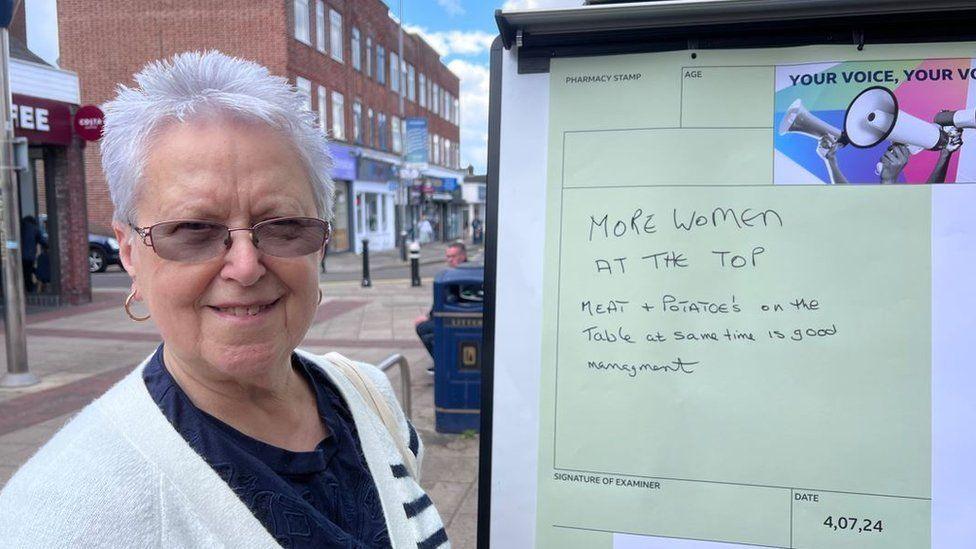 FEE
COSTA
LITTER
PHARMACY STAMP
AGE
YOUR VOICE, YOUR VO
MORE WOMEN
AT THE TOP
MEAT + POTATOE'S on the
Table at same time is good
managment
SIGNATURE OF EXAMINER
DATE
4,07,24